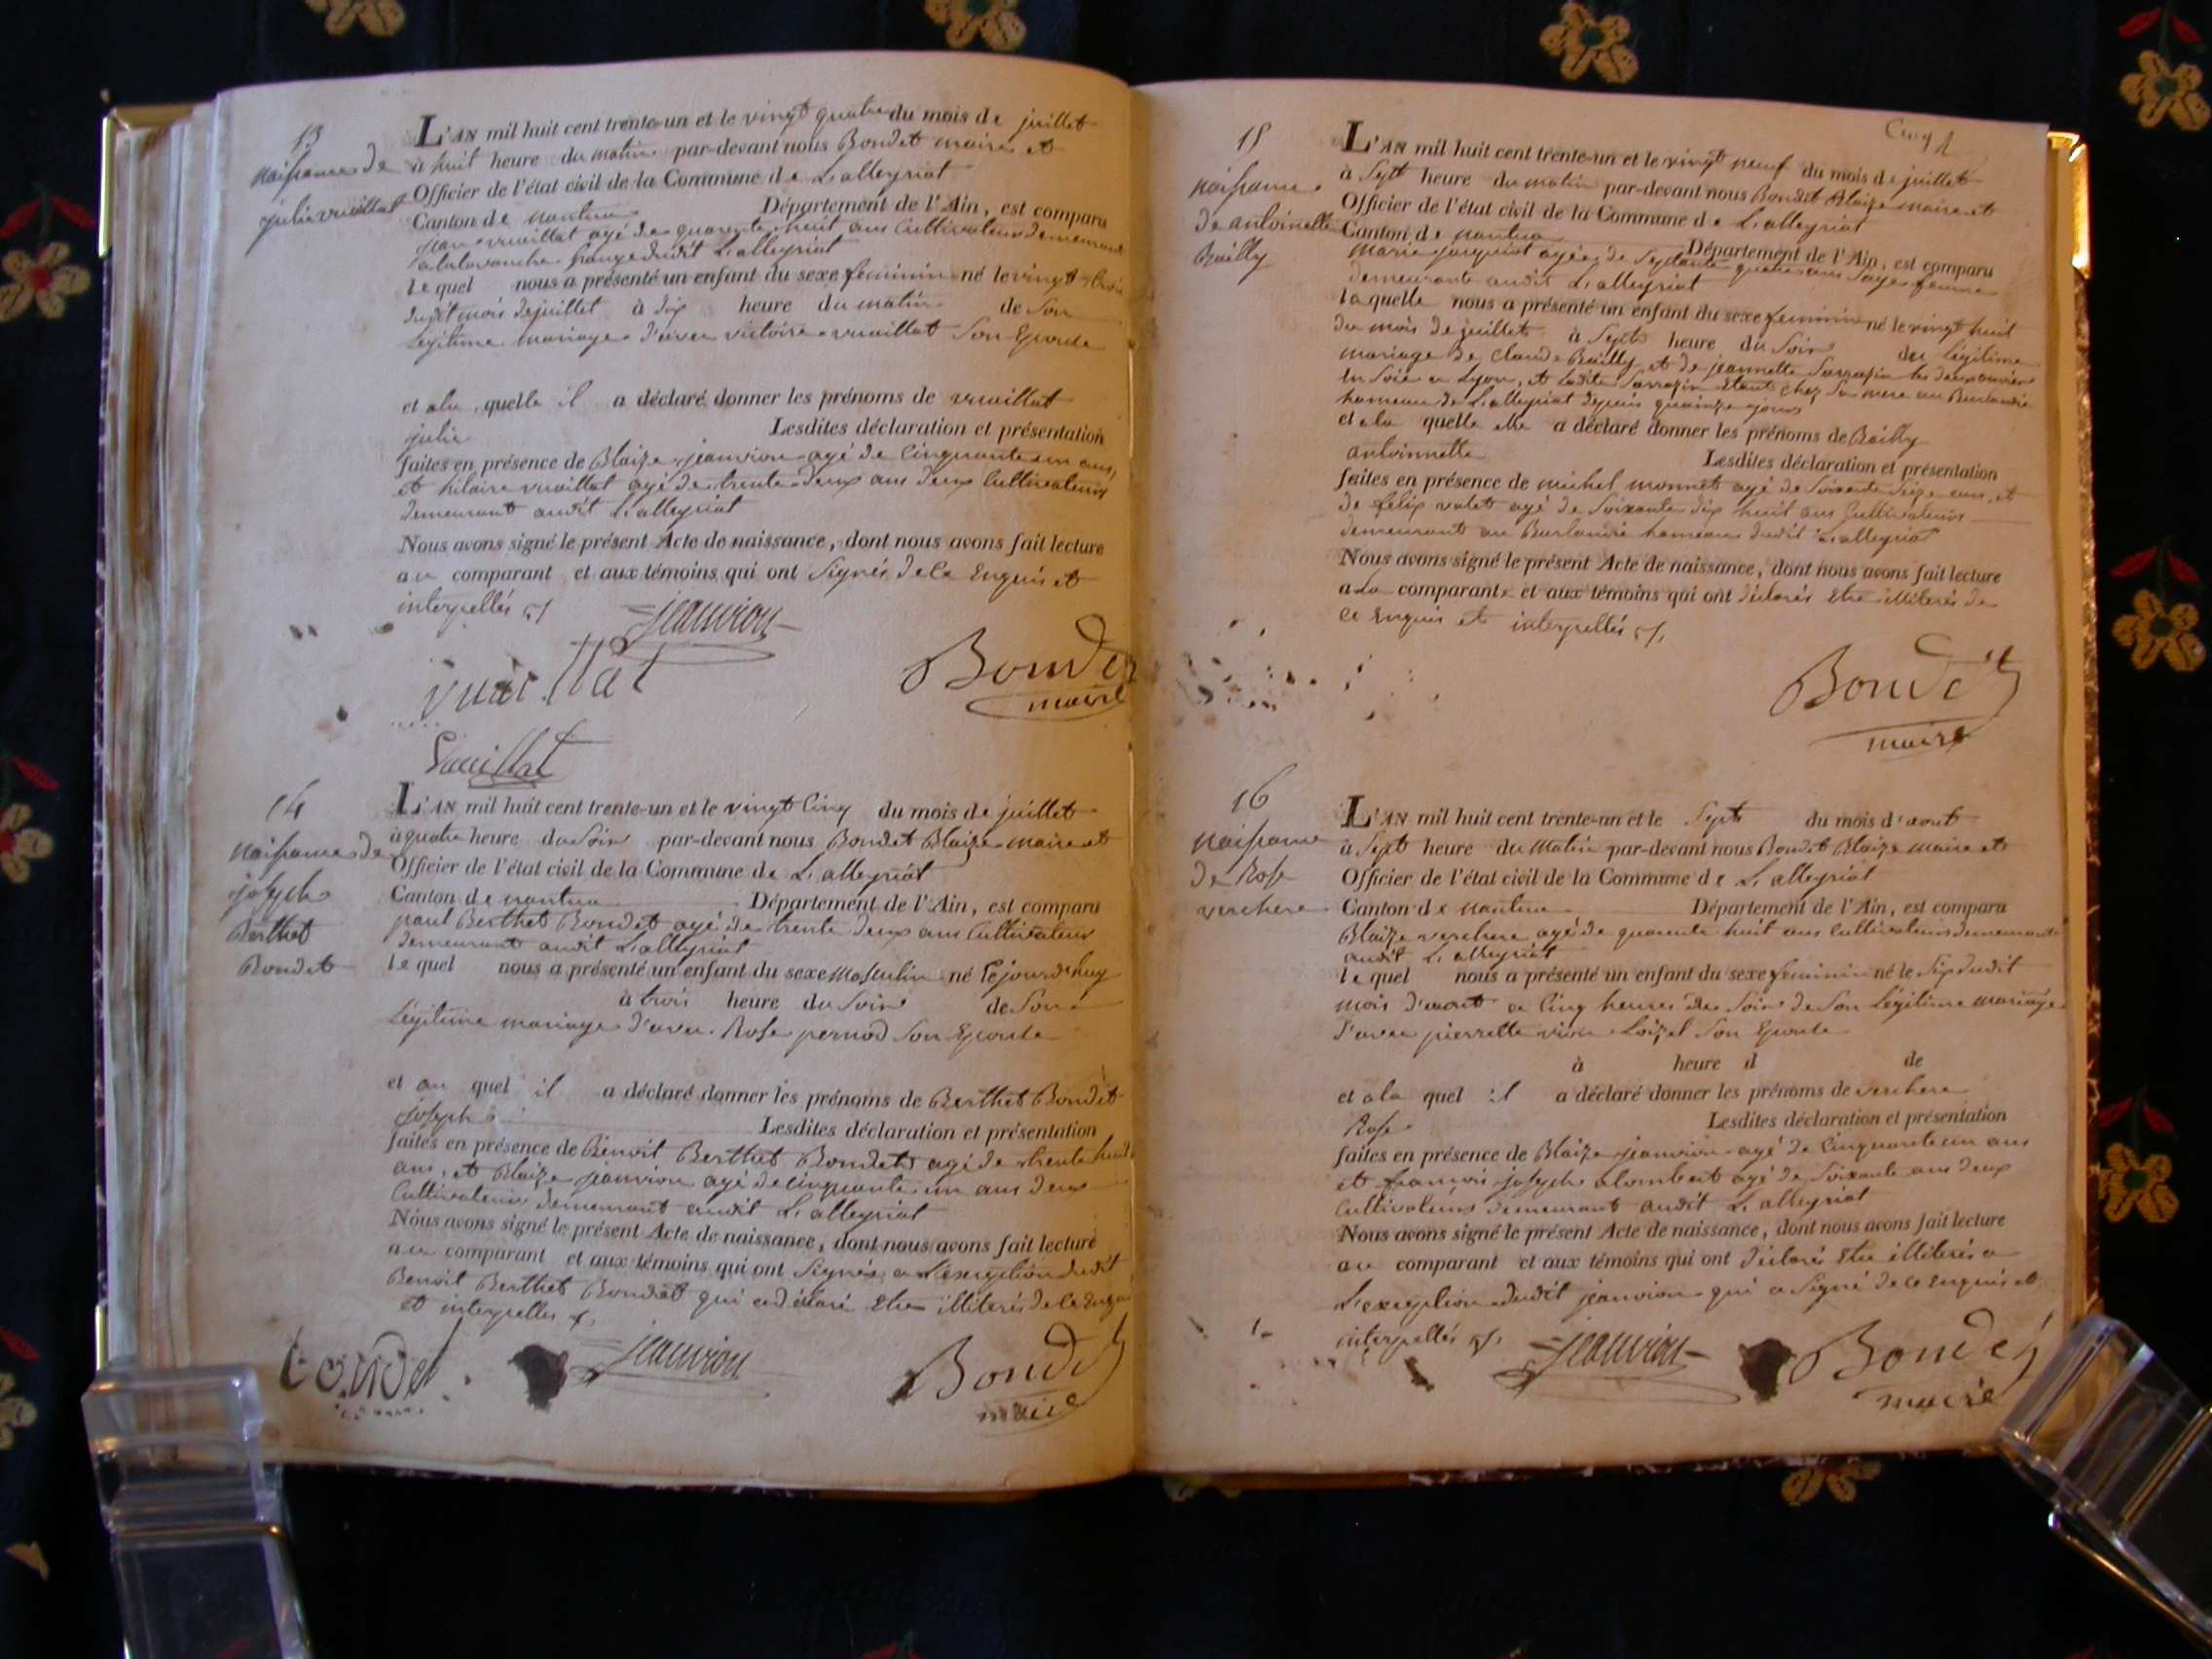 13
naissance de
julie vuaillat
L'AN mil huit cent trente-un et le vingt quatre du mois de juillet
à huit heure du matin par-devant nous Bondet maire et
Officier de l'état civil de la Commune de L'alleyriat
Canton de nantua Département de l'Ain, est comparu
jean vuaillat agé de quarante huit ans Cultivateur demeurant
grange dudit L'alleyriat
lequel nous a présenté un enfant du sexe feminin né le vingt trois
dudit mois de juillet à dix heure du matin de Son
Légitime mariage d'avec victoire vuaillat Son Epouse
et a la quelle il a déclaré donner les prénoms de vuaillat
julie Lesdites déclaration et présentation
faites en présence de Blaize jeanvion agé de Cinquante un ans,
et hilaire vuaillat agé de trente deux ans deux Cultivateurs
demeurant audit L'alleyriat
Nous avons signé le présent Acte de naissance, dont nous avons fait lecture
au comparant et aux témoins qui ont Signés de Ce Enquis et
interpellés
jeanvion
vuaillat
Bondet
maire
Vuaillat
14
naissance de
joseph
Berthet
Bondet
L'AN mil huit cent trente-un et le vingt Cinq du mois de juillet
à quatre heure du Soir par-devant nous Bondet Blaize maire et
Officier de l'état civil de la Commune de L'alleyriat
Canton de nantua Département de l'Ain, est comparu
paul Berthet Bondet agé de trente deux ans Cultivateur
demeurant audit L'alleyriat
lequel nous a présenté un enfant du sexe Masculin né Cejourdhuy
à trois heure du Soir de Son
Légitime mariage d'avec Rose pernod Son Epouse
et au quel il a déclaré donner les prénoms de Berthet Bondet
joseph Lesdites déclaration et présentation
faites en présence de Benoit Berthet Bondet agé de trente huit
ans, et Blaize jeanvion agé de cinquante un ans deux
Cultivateurs demeurant audit L'alleyriat
Nous avons signé le présent Acte de naissance, dont nous avons fait lecture
au comparant et aux témoins qui ont Signés a L'exception dudit
Benoit Berthet Bondet qui a déclaré Etre illiterés de Ce Enquis
et interpelles
bondet
jeanvion
Bondet
maire
Cinq
15
naissance
de antoinette
Bailly
L'AN mil huit cent trente-un et le vingt neuf du mois de juillet
à Sept heure du matin par-devant nous Bondet Blaize maire et
Officier de l'état civil de la Commune de L'alleyriat
Canton de nantua Département de l'Ain, est comparu
Marie agée de Septante quatre ans Sage femme
demeurante audit L'alleyriat
laquelle nous a présenté un enfant du sexe feminin né le vingt huit
du mois de juillet à Sept heure du Soir du Légitime
mariage de Claude Bailly et de jeannette Sarrazin les deux ouvriers
En Soie a Lyon, et ladite Sarrazin Etant chez Sa mere au Burlandié
hameau de L'alleyriat depuis quainze jours
et a la quelle elle a déclaré donner les prénoms de Bailly
antoinnette Lesdites déclaration et présentation
faites en présence de michel monnet agé de Soixante Seize ans, et
de felix valet agé de Soixante dix huit ans Cultivateurs
demeurant au Burlandié hameau dudit L'alleyriat
Nous avons signé le présent Acte de naissance, dont nous avons fait lecture
a La comparante et aux témoins qui ont déclarés Etre illiterés de
Ce Enquis et interpellés
Bondet
maire
16
naissance
de Rose
verchere
L'AN mil huit cent trente-un et le Sept du mois d'aout
à Sept heure du Matin par-devant nous Bondet Blaize maire et
Officier de l'état civil de la Commune de L'alleyriat
Canton de Nantua Département de l'Ain, est comparu
Blaize verchere agé de quarante huit ans Cultivateur demeurant
audit L'alleyriat
lequel nous a présenté un enfant du sexe feminin né le Six dudit
mois d'aout a Cinq heures du Soir de Son Légitime mariage
d'avec pierrette vion Loizel Son Epouse
à heure d de
et a la quel il a déclaré donner les prénoms de verchere
Rose Lesdites déclaration et présentation
faites en présence de Blaize jeanvion agé de Cinquante un ans
et francois joseph alombert agé de Soixante ans deux
Cultivateurs demeurant audit L'alleyriat
Nous avons signé le présent Acte de naissance, dont nous avons fait lecture
au comparant et aux témoins qui ont déclarés Etre illiterés a
L'exception dudit jeanvion qui a Signé de Ce Enquis et
interpellés
jeanvion
Bondet
maire